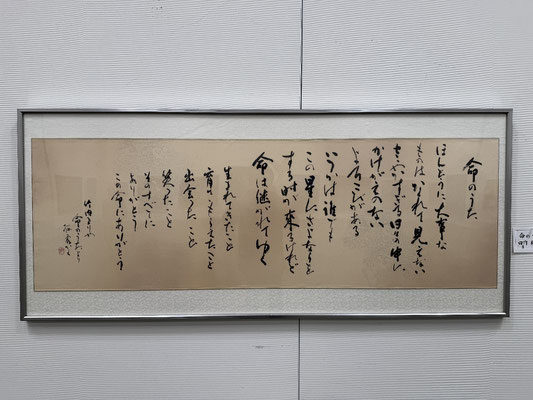 命のうた
ほんとうに大事な
ものは かくれて見えない
ささやかすぎる日々の中に
かけがえのない
よろこびがある
いつかは誰でも
この星にさよならを
する時が来るけれど
命は継がれてゆく
生まれてきたこと
育ててもらえたこと
出会ったこと
笑ったこと
そのすべてに
ありがとう
この命にありがとう
命のうたより